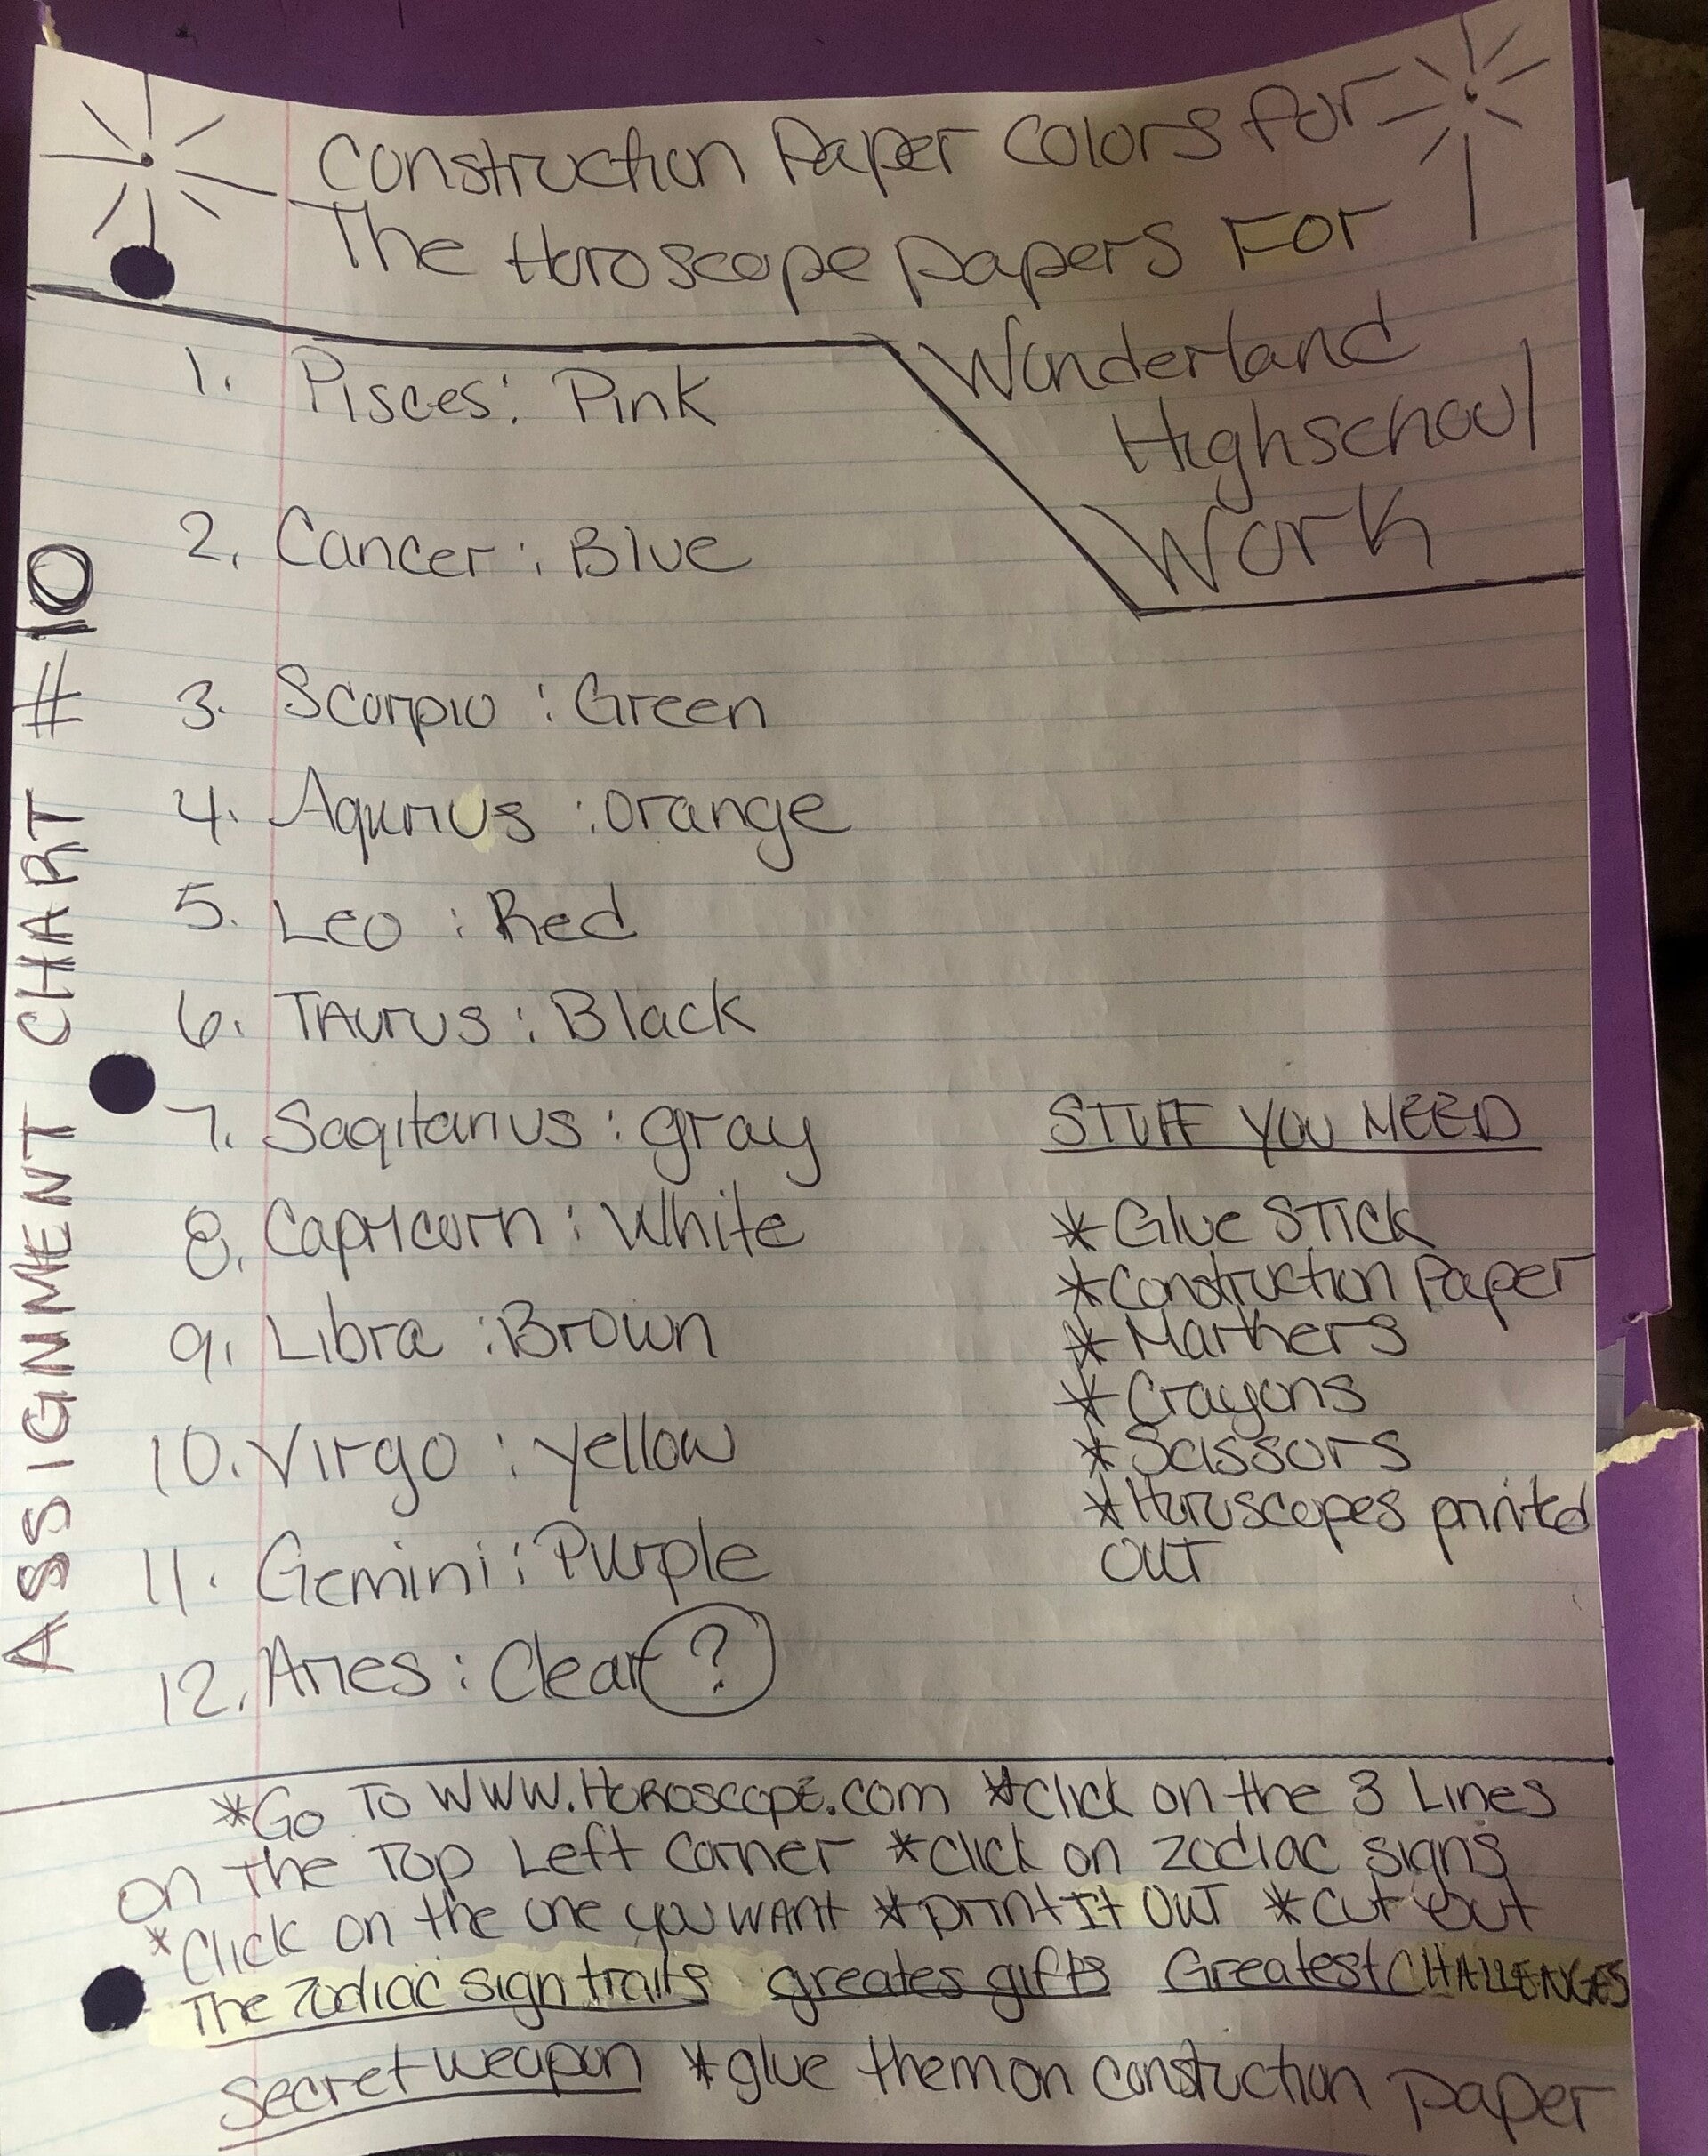 Construction Paper Colors for
The Horoscope papers For
Wonderland
Highschool
Work
ASSIGNMENT CHART #10
1. Pisces: Pink
2. Cancer: Blue
3. Scorpio: Green
4. Aqurius: orange
5. Leo: Red
6. TAurus: Black
7. Sagitarius: gray
8. Capricorn: White
9. Libra: Brown
10. Virgo: yellow
11. Gemini: Purple
12. Aries: Clear ?
STUFF YOU NEED
* Glue STick
* Construction Paper
* Markers
* Crayons
* Scissors
* Horoscopes printed
OUT
*Go To WWW.HOROSCOPE.com *Click on the 3 Lines
on The Top Left Corner *click on zodiac signs
*Click on the one you WANt *print It OUT *cut out
The Zodiac sign traits greates gifts Greatest CHALLENGES
Secret weapon *glue them on constuction paper